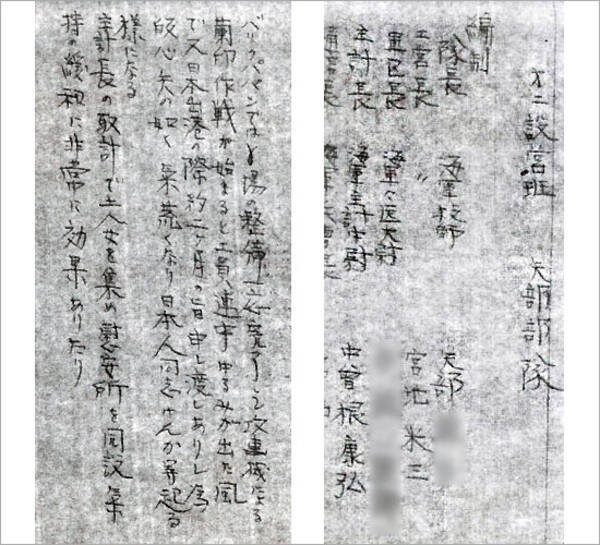 才二設営班 矢部部隊
編制
隊長 海軍技師 矢部
工営長 〃 宮地米三
軍医長 海軍々医大尉
主計長 海軍主計中尉 中曽根康弘
バリクパパンでは場の整備一応完了して攻撃機による
蘭印作戦が始まると工員連中ゆるみが出た風
で又日本出港の際約二ヶ月の旨申し渡しありし為
皈心矢の如く気荒くなり日本人同志けんか等起る
様になる
主計長の取計で土人女を集め慰安所を開設気
持の緩和に非常に効果ありたり